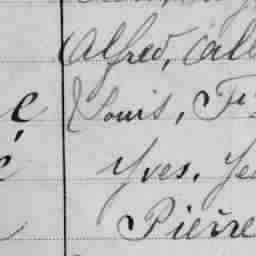 Alfred, Cal
Louis, F
Yves, Je
Pierre